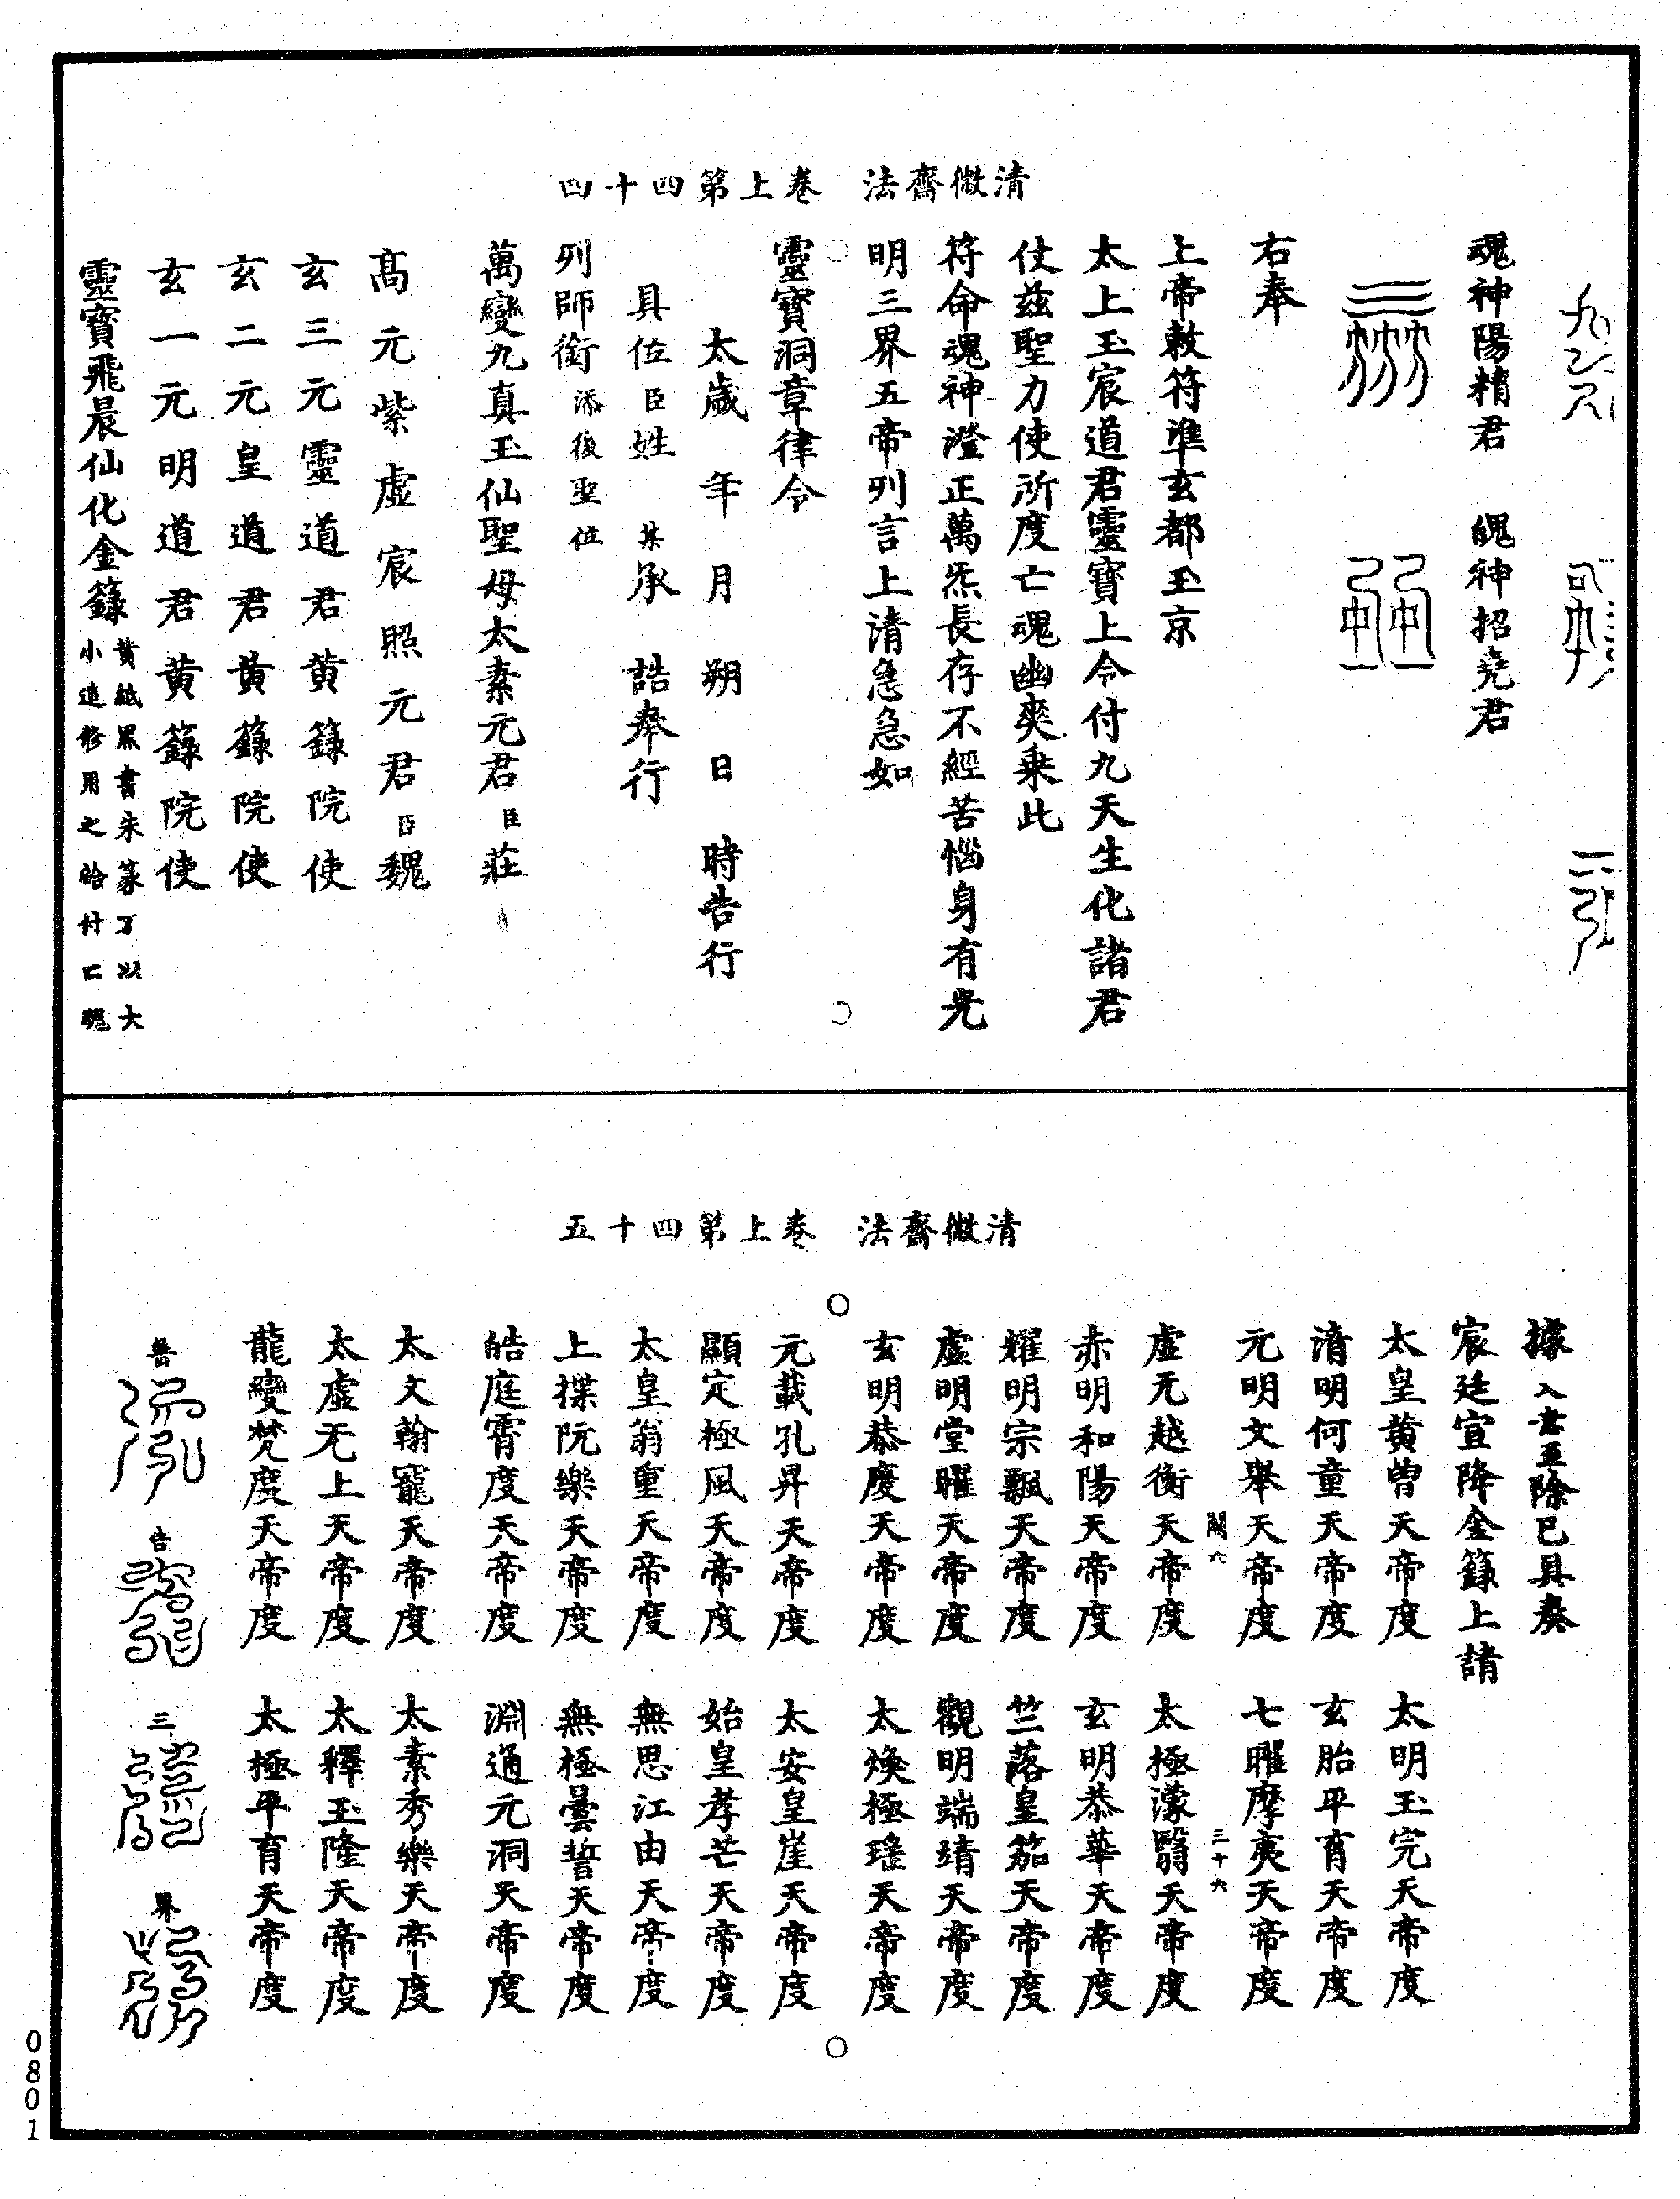 清微齋法　卷上第四十四
魂神陽精君　魄神招堯君
右奉
上帝敕符準玄都玉京
太上玉宸道君靈寶上令付九天生化諸君
仗兹聖力使所度亡魂幽爽乗此
符命魂神澄正萬炁長存不經苦惱身有光
明三界五帝列言上清急急如
靈寶洞章律令
太歲　年　月　朔　日　時告行
具位臣姓　某承　誥奉行
列師銜添後聖位
萬變九真玉仙聖母太素元君臣莊
髙元紫虛宸照元君臣魏
玄三元靈道君黄籙院使
玄二元皇道君黄籙院使
玄一元明道君黄籙院使
靈寶飛晨仙化金籙黄紙黑書朱篆了以大
小進修用之給付亡魂
清微齋法　卷上第四十五
據入意至除已具奏
宸廷宣降金籙上請
太皇黄曽天帝度　太明玉完天帝度
清明何童天帝度　玄胎平育天帝度
元明文舉天帝度　七曜摩夷天帝度
闕六　三十六
虛无越衡天帝度　太極濛翳天帝度
赤明和陽天帝度　玄明恭華天帝度
耀明宗飄天帝度　竺落皇笳天帝度
虛明堂曜天帝度　觀明端靖天帝度
玄明恭慶天帝度　太煥極瑤天帝度
元載孔昇天帝度　太安皇崖天帝度
顯定極風天帝度　始皇孝芒天帝度
太皇翁重天帝度　無思江由天帝度
上揲阮樂天帝度　無極曇誓天帝度
皓庭霄度天帝度　淵通元洞天帝度
太文翰寵天帝度　太素秀樂天帝度
太虛无上天帝度　太釋玉隆天帝度
龍變梵度天帝度　太極平育天帝度
普　告　三　界
0801